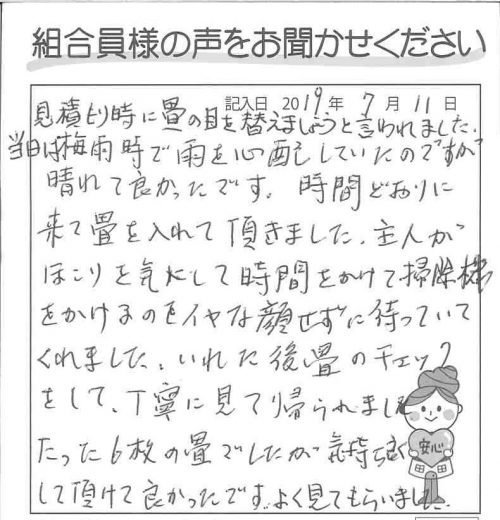 組合員様の声をお聞かせください
記入日 2019年 7月 11日
見積もり時に畳の目を替えましょうと言われました。
当日は梅雨時で雨を心配していたのですが
晴れて良かったです。時間どおりに
来て畳を入れて頂きました。主人が
ほこりを気にして時間をかけて掃除機
をかけるのをイヤな顔せずに待っていて
くれました。いれた後畳のチェック
をして、丁寧に見て帰られまし
たった6枚の畳でしたが気持ち良く
して頂けて良かったです。よく見てもらいました。
安心